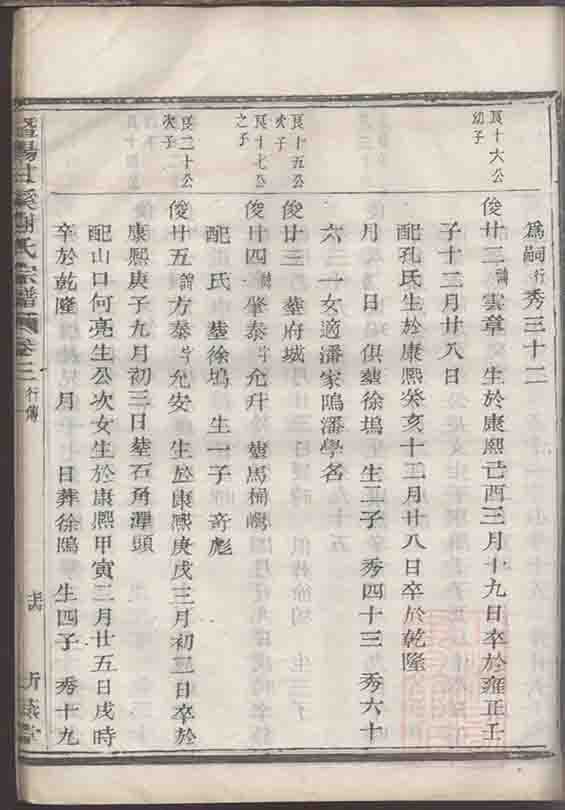 為嗣行秀三十二
良十六公
幼子
俊廿三諱雲章 生於康熙己酉三月十九日卒於雍正壬
子十二月廿八日
配孔氏生於康熙癸亥十二月廿八日卒於乾隆
月 日俱塟徐塢生二子 秀四十三 秀六十
六 一女適潘家隝潘學名
良十五公
次子
俊廿三 塟府城
良十七公
之子
俊廿四諱肇泰字允升 塟馬桶嶼
配 氏 塟徐塢 生一子 奇彪
良二十公
次子
俊廿五諱方泰字允安 生於康熙庚戌三月初二日卒於
康熙庚子九月初三日塟石角潭頭
配山口何亮生公次女生於康熙甲寅二月廿五日戌時
卒於乾隆 月 日葬徐隝 生四子 秀十九
暨陽 溪謝氏宗譜 卷三 行傳